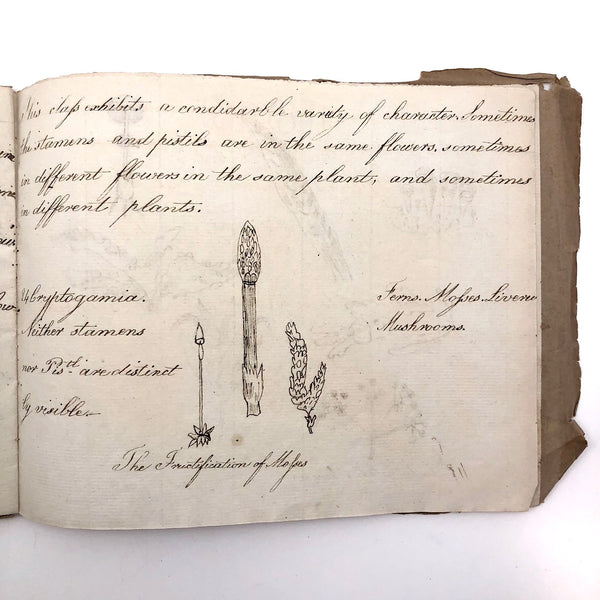 This class exhibits a condidarble varity of character. Sometimes
the stamens and pistils are in the same flowers, sometimes
in different flowers in the same plant, and sometimes
in different plants.
24 Cryptogamia.
Neither stamens
nor Pistl. are distinct
ly visible.
Ferns. Mosses. Liver
Mushrooms.
The Fructification of Mosses